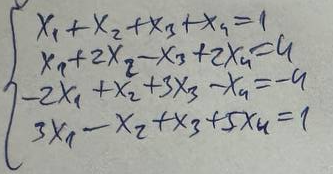 x₁+x₂+x₃+x₄=1
x₁+2x₂-x₃+2x₄=4
-2x₁+x₂+3x₃-x₄=-4
3x₁-x₂+x₃+5x₄=1